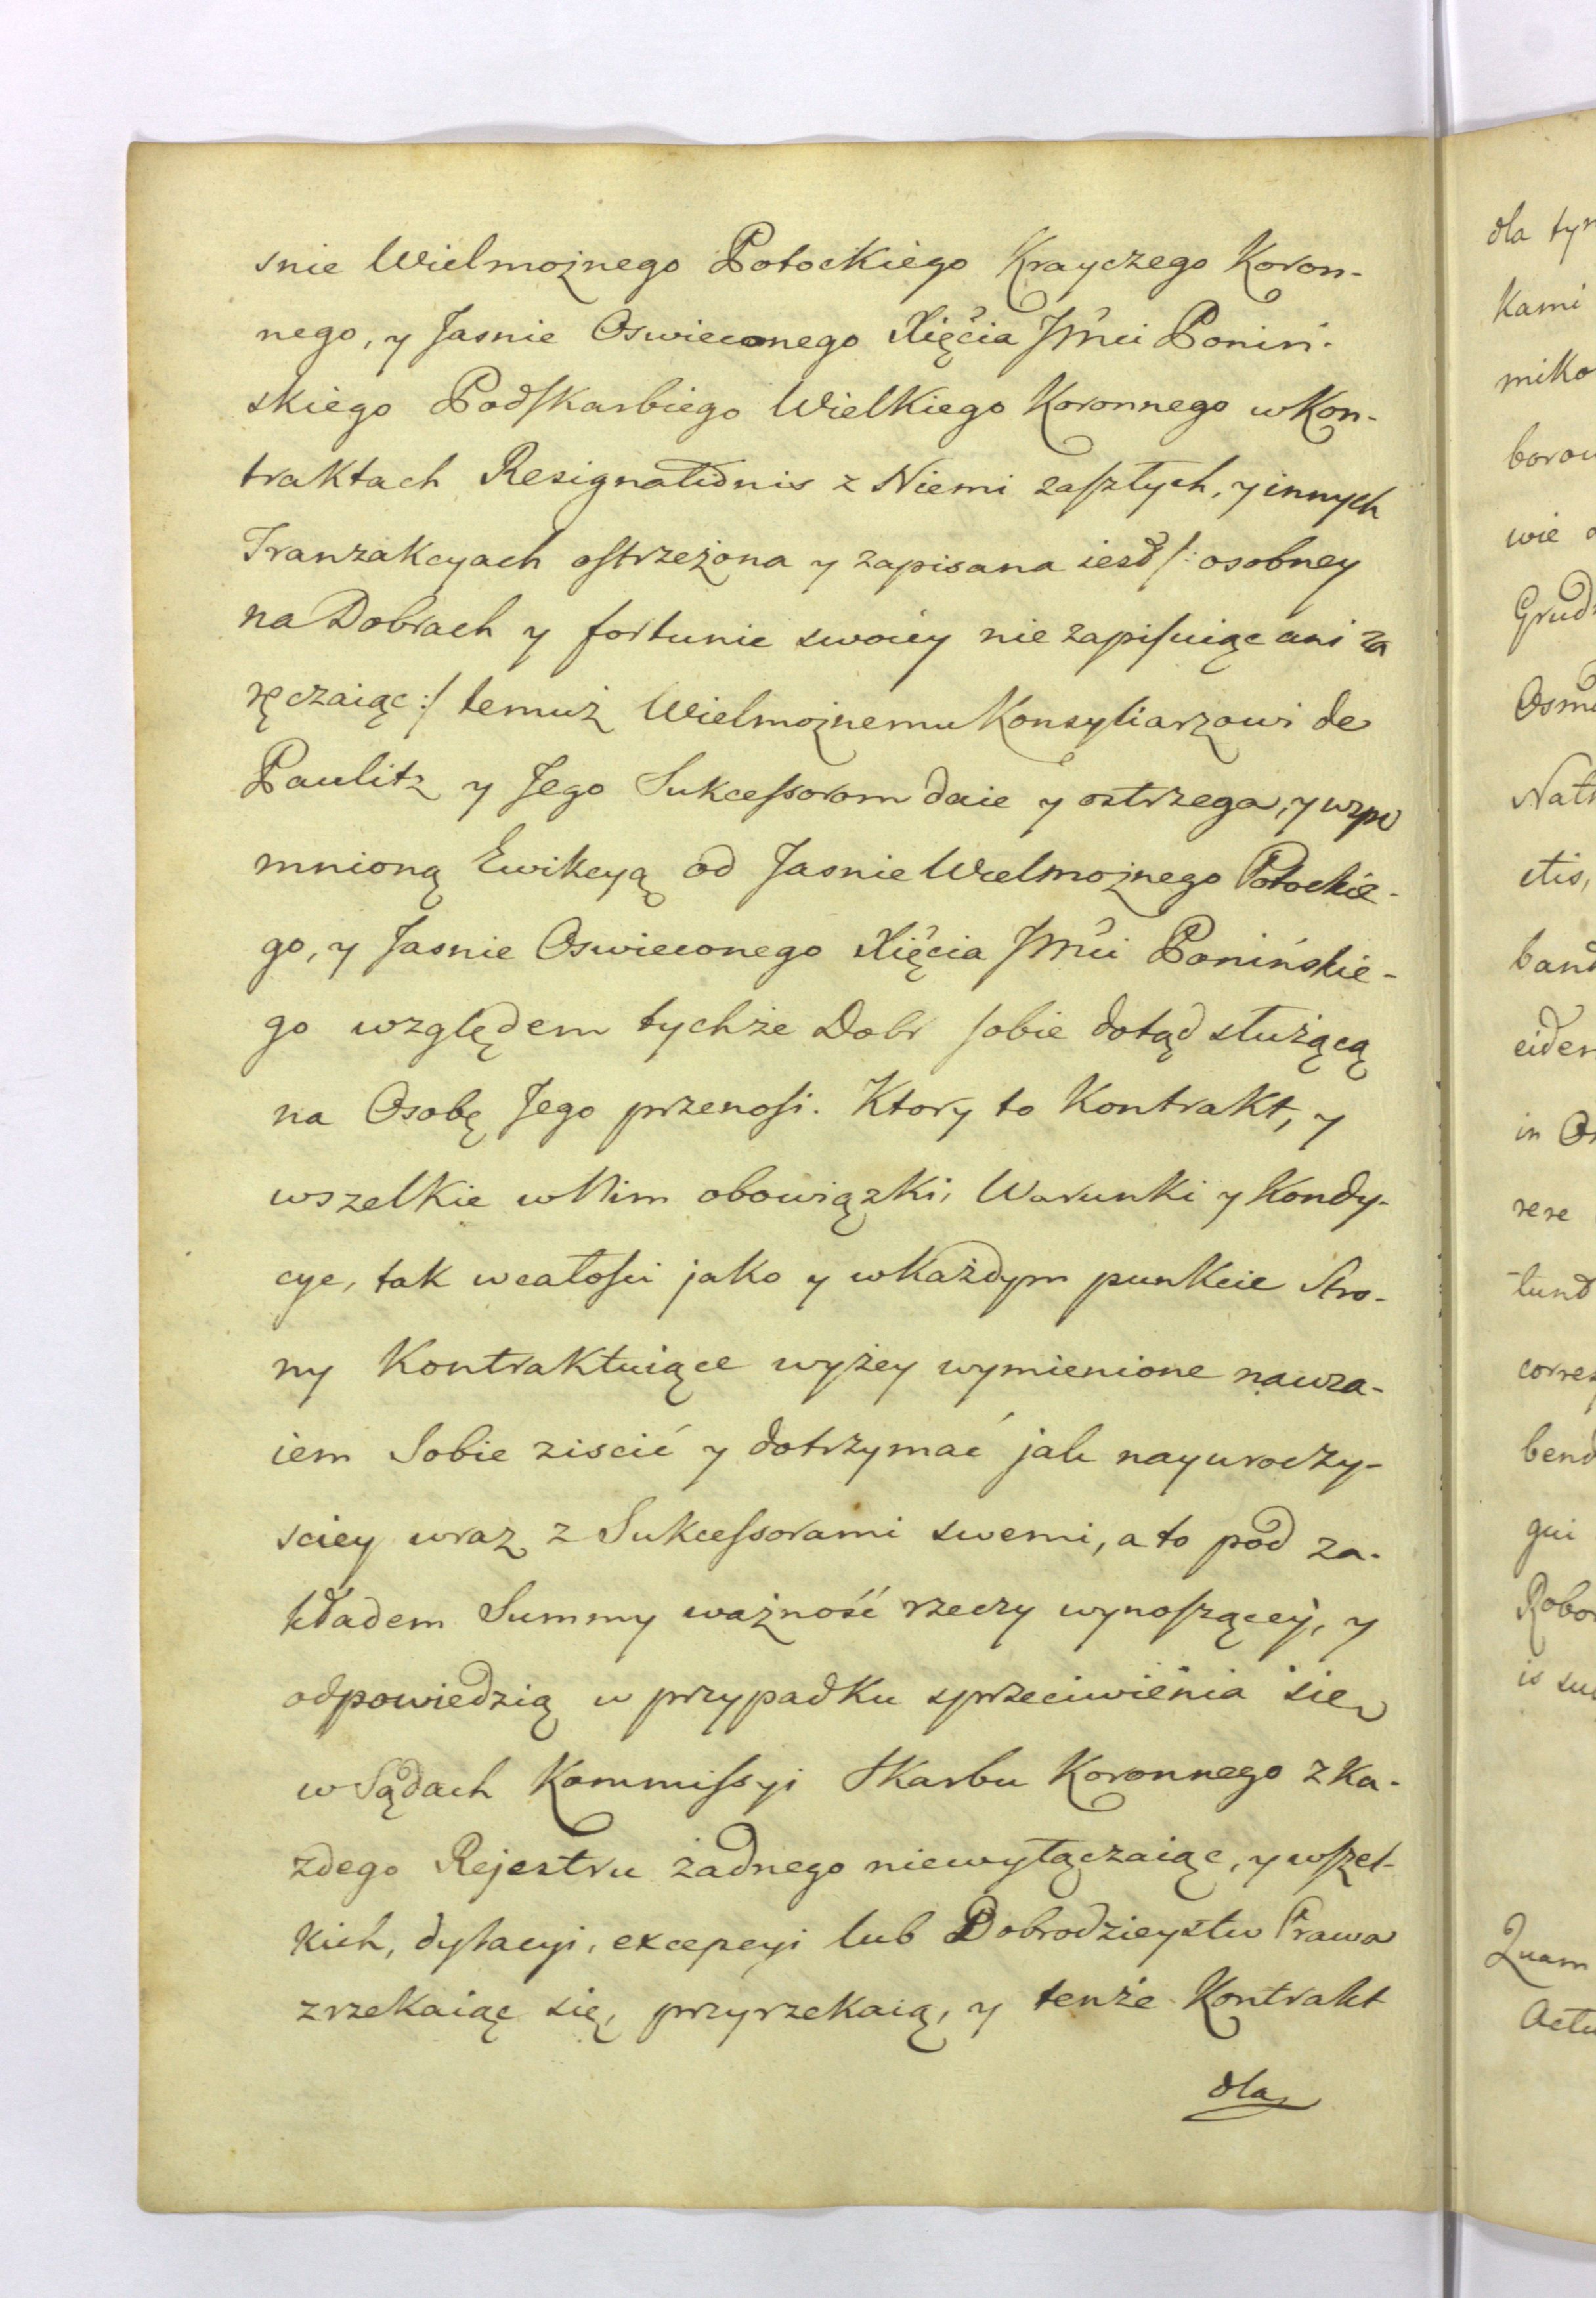 snie Wielmożnego Potockiego Krayczego Koron-
nego, y Jasnie Oswieconego Xięćia Jmći Poniń-
skiego Podskarbiego Wielkiego Koronnego w Kon-
traktach Resignationis z Niemi zaszłych, y innych
Tranzakcyach ostrzeżona y zapisana iest /: osobney
na Dobrach y fortunie swoiey nie zapisuiąc ani za
ręczaiąc :/ temuż Wielmożnemu Konsyliarzowi de
Paulitz y Jego Sukcessorom daie y ostrzega, y wspo
mnioną Ewikcyą od Jasnie Wielmożnego Potockie-
go, y Jasnie Oswieconego Xięćia Jmći Ponińskie-
go względem tychże Dobr sobie dotąd służącą
na Osobę Jego przenosi. Ktory to Kontrakt, y
wszelkie w Nim obowiązki, Warunki y Kondy-
cye, tak w całości jako y w każdym punkcie Stro-
ny Kontraktuiące wyżey wymienione nawza-
iem Sobie ziscić y dotrzymać jak nayuroczy-
sciey wraz z Sukcessorami swemi, a to pod za-
kładem Summy ważność rzeczy wynoszącey, y
odpowiedzią w przypadku sprzeciwienia sie
w Sądach Kommissyi Skarbu Koronnego z Ka-
zdego Rejestru żadnego niewyłączaiąc, y wszel-
kich, dylacyi, excepcyi lub Dobrodzieystw Prawa
zrzekaiąc się, przyrzekaią, y tenże Kontrakt
dla
dla
kami
miko
wie
Quam